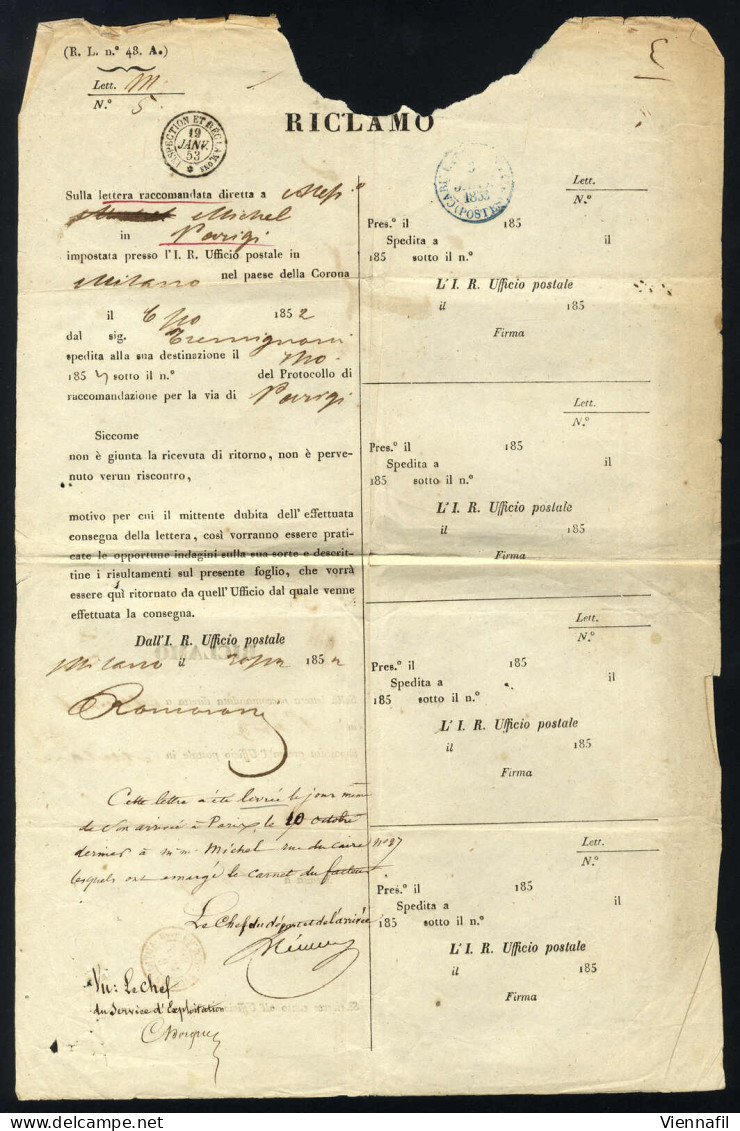 (R. L. n.º 48. A.)
Lett. M
N.º 5.
RICLAMO
INSPECTION ET RÉCLAM.ONS
19
JANV.
53
(POSTES)
1853
Sulla lettera raccomandata diretta a
Michel
in Parigi
impostata presso l'I. R. Ufficio postale in
Milano nel paese della Corona
il 6 1852
dal sig.
spedita alla sua destinazione il
185 sotto il n.º del Protocollo di
raccomandazione per la via di Parigi
Siccome
non è giunta la ricevuta di ritorno, non è perve-
nuto verun riscontro,
motivo per cui il mittente dubita dell'effettuata
consegna della lettera, così vorranno essere prati-
cate le opportune indagini sulla sua sorte e descrit-
tine i risultamenti sul presente foglio, che vorrà
essere qui ritornato da quell'Ufficio dal quale venne
effettuata la consegna.
Dall'I. R. Ufficio postale
Milano il 1852
Cette lettre a été livrée le jour même
de son arrivée à Paris, le 10 octobre
dernier à m.m. Michel rue du Caire nº 27
lesquels ont émargé le carnet du facteur
Le Chef du départ et de l'arrivée
Vu: Le Chef
du Service d'Exploitation
Lett.
N.º
Pres.º il 185
Spedita a il
185 sotto il n.º
L'I. R. Ufficio postale
il 185
Firma
Lett.
N.º
Pres.º il 185
Spedita a il
185 sotto il n.º
L'I. R. Ufficio postale
il 185
Firma
Lett.
N.º
Pres.º il 185
Spedita a il
185 sotto il n.º
L'I. R. Ufficio postale
il 185
Firma
Lett.
N.º
Pres.º il 185
Spedita a il
185 sotto il n.º
L'I. R. Ufficio postale
il 185
Firma
Viennafil